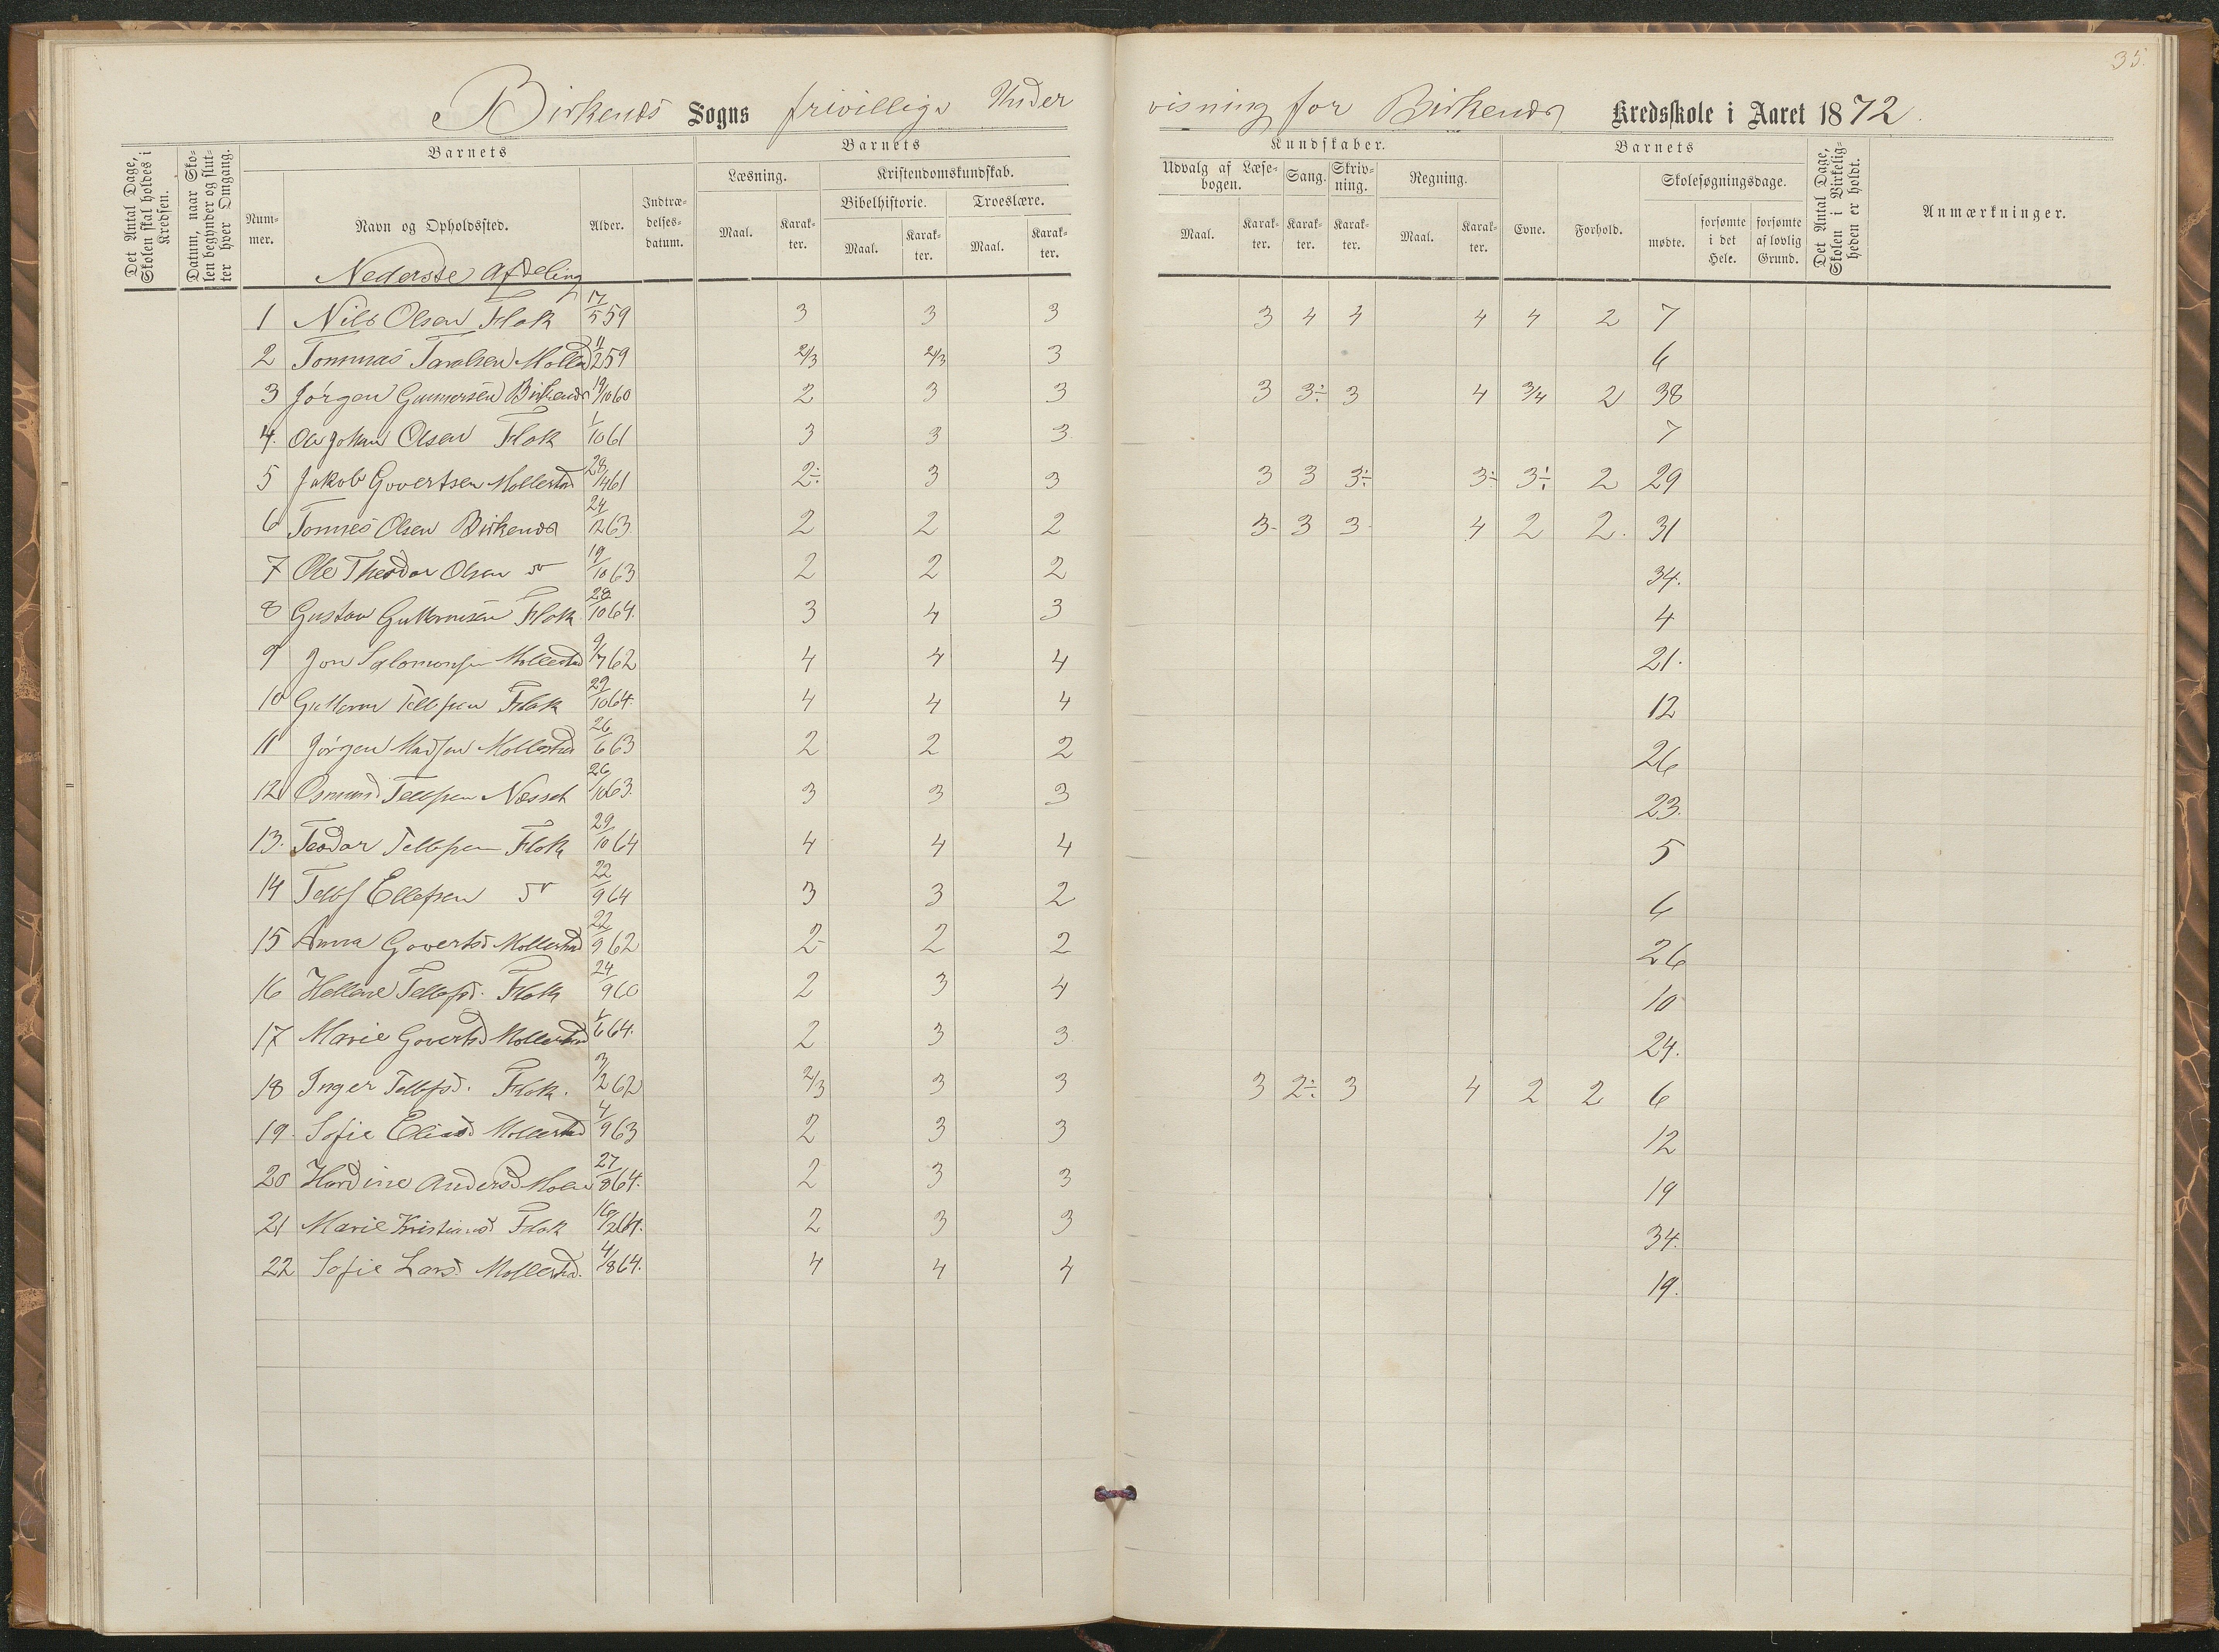 35.
Birkenes Sogns frivillige Undervisning for Birkenes Kredsskole i Aaret 1872.
Det Antal Dage, Skolen skal holdes i Kredsen.
Datum, naar Skolen begynder og slutter hver Omgang.
Barnets
Nummer. Navn og Opholdssted. Alder. Indtrædelsesdatum.
Barnets Kundskaber.
Læsning. Maal. Karakter.
Kristendomskundskab.
Bibelhistorie. Maal. Karakter.
Troeslære. Maal. Karakter.
Udvalg af Læsebogen. Maal. Karakter.
Sang. Karakter.
Skrivning. Karakter.
Regning. Maal. Karakter.
Barnets
Evne. Forhold.
Skolesøgningsdage.
mødte. forsømte i det Hele. forsømte af lovlig Grund.
Det Antal Dage, Skolen i Virkeligheden er holdt.
Anmærkninger.
Nederste Afdeling
1 Nils Olsen Flak 17/5 59 3 3 3 3 4 4 4 4 2 7
2 Tommas Taralsen Mollestad 11/2 59 2/3 2/3 3 6
3 Jörgen Gunnersen Birkenes 19/10 60 2 3 3 3 3÷ 3 4 3/4 2 38
4. Ole Johan Olsen Flak 1/10 61 3 3 3 7
5 Jakob Govertsen Mollestad 28/ 61 2÷ 3 3 3 3 3÷ 3÷ 3÷ 2 29
6 Tommes Olsen Birkenes 24/12 63. 2 2 2 3- 3 3- 4 2 2. 31
7 Ole Theodor Olsen do 19/10 63 2 2 2 34.
8 Gustav Guttormsen Flak 28/10 64. 3 4 3 4
9 Jon Salomonsen Mollestad 9/7 62 4 4 4 21.
10 Guttorm Tellefsen Flak 29/10 64. 4 4 4 12
11 Jörgen Madsen Mollestad 26/6 63 2 2 2 26
12 Osmund Tellefsen Næsset 26/10 63. 3 3 3 23.
13. Teodor Tellefsen Flak 29/10 64 4 4 4 5
14 Tellef Ellefsen do 22/9 64 3 3 2 6
15 Anna Govertsd Mollestad 22/9 62 2- 2 2 26
16 Hellene Tellefsd. Flak 24/9 60 2 3 4 10
17 Marie Govertsd Mollestad 1/6 64. 2 3 3 24.
18 Inger Tellefsd. Flak. 3/2 62 2/3 3 3 3 2÷ 3 4 2 2 6
19. Sofie Eliasd Mollestad 4/9 63 2 3 3 12
20 Hardine Andersd 27/8 64. 2 3 3 19
21 Marie Kristiansd Flak 16/2 64. 2 3 3 34.
22 Sofie Larsd. Mollestad. 4/8 64. 4 4 4 19.